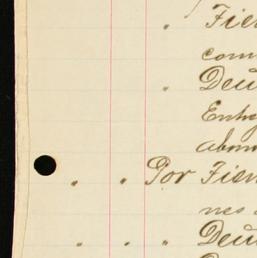 " Fien
com
" Deu
Enho
abon
" " Por Fien
nes
" " " Deu